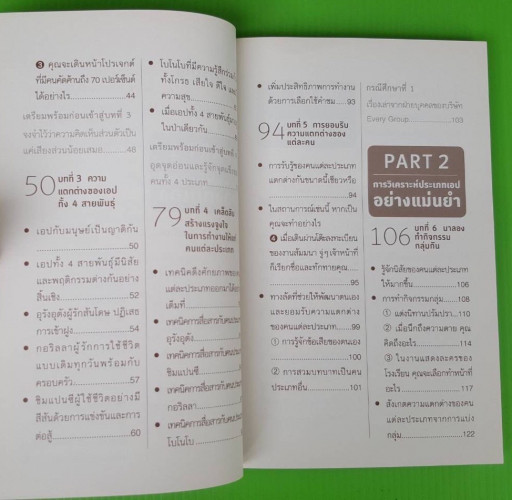 ❸ คุณจะเดินหน้าโปรเจกต์
ที่มีคนคัดค้านถึง 70 เปอร์เซ็นต์
ได้อย่างไร...............44
เตรียมพร้อมก่อนเข้าสู่บทที่ 3
จงจำไว้ว่าความคิดเห็นส่วนตัวเป็น
แค่เสียงส่วนน้อยเสมอ.........48
50 บทที่ 3 ความ
แตกต่างของเอป
ทั้ง 4 สายพันธุ์
• เอปกับมนุษย์เป็นญาติกัน
...............50
• เอปทั้ง 4 สายพันธุ์มีนิสัย
และพฤติกรรมต่างกันอย่าง
สิ้นเชิง...............52
• อุรังอุตังผู้รักสันโดษ ปฏิเสธ
การเข้าฝูง...............54
• กอริลลาผู้รักการใช้ชีวิต
แบบเดิมทุกวันพร้อมกับ
ครอบครัว...............57
• ชิมแปนซีผู้ใช้ชีวิตอย่างมี
สีสันด้วยการแข่งขันและการ
ต่อสู้...............60
• โบโนโบที่มีความรู้สึกร่วม
ทั้งโกรธ เสียใจ ดีใจ และ
ความสุข...............
• เมื่อเอปทั้ง 4 สายพันธุ์
ในป่าเดียวกัน
เตรียมพร้อมก่อนเข้าสู่บทที่
คนทั้ง 4 ประเภท
79 บทที่ 4 เคล็ดลับ
สร้างแรงจูงใจ
ในการทำงานให้แก่
คนแต่ละประเภท
• เทคนิคดึงศักยภาพของ
แต่ละประเภทออกมาได้
เต็มที่...............
• เทคนิคการสื่อสารกับคน
อุรังอุตัง...............
• เทคนิคการสื่อสารกับคน
ชิมแปนซี...............
• เทคนิคการสื่อสารกับคน
กอริลลา...............
• เทคนิคการสื่อสารกับคน
โบโนโบ...............
• เพิ่มประสิทธิภาพการทำงาน
ด้วยการเลือกใช้คำชม......93
94 บทที่ 5 การยอมรับ
ความแตกต่างของ
แต่ละคน
• การรับรู้ของคนแต่ละประเภท
แตกต่างกันขนาดนี้เชียวหรือ
...............94
• ในสถานการณ์เช่นนี้ หากเป็น
คุณจะทำอย่างไร
❹ เมื่อเดินผ่านโต๊ะลงทะเบียน
ของงานสัมมนา จู่ๆ เจ้าหน้าที่
ก็เรียกชื่อและทักทายคุณ.....
...............95
• ทางลัดที่ช่วยให้พัฒนาตนเอง
และยอมรับความแตกต่าง
ของคนแต่ละประเภท.........99
① การรู้จักข้อเสียของตนเอง
...............100
② การสวมบทบาทเป็นคน
ประเภทอื่น...............101
กรณีศึกษาที่ 1
เรื่องเล่าจากฝ่ายบุคคลของบริษัท
Every Group...............103
PART 2
การวิเคราะห์ประเภทเอป
อย่างแม่นยำ
106 บทที่ 6 มาลอง
ทำกิจกรรม
กลุ่มกัน
• รู้จักนิสัยของคนแต่ละประเภท
ให้มากขึ้น...............106
• การทำกิจกรรมกลุ่ม.........108
① แต่งนิทานปรัมปรา.....110
② เมื่อนึกถึงความตาย คุณ
คิดถึงอะไร...............114
③ ในงานแสดงละครของ
โรงเรียน คุณจะเลือกทำหน้าที่
อะไร...............117
• สังเกตความแตกต่างของคน
แต่ละประเภทจากการแบ่ง
กลุ่ม...............122